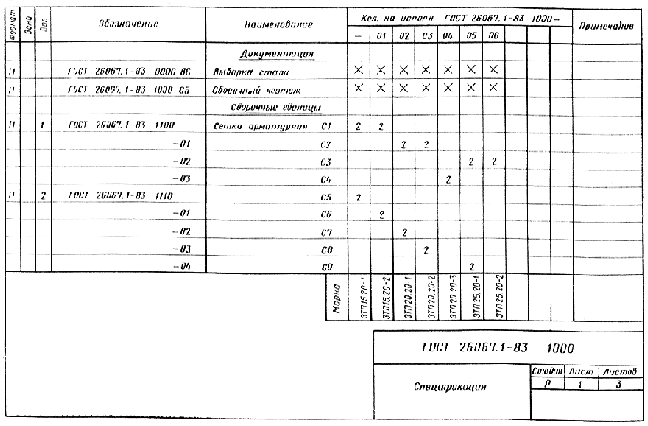 Формат Зона Поз. Обозначение Наименование Кол. на исполн. ГОСТ 26067.1-83 1000- Примечание
— 01 02 03 04 05 06
Документация
11 ГОСТ 26067.1-83 0000 ВС Выборка стали X X X X X X X
11 ГОСТ 26067.1-83 1000 СБ Сборочный чертеж X X X X X X X
Сборочные единицы
11 1 ГОСТ 26067.1-83 1100 Сетка арматурная С1 2 2
-01 С2 2 2
-02 С3 2 2
-03 С4 2
11 2 ГОСТ 26067.1-83 1110 С5 2
-01 С6 2
-02 С7 2
-03 С8 2
-04 С9 2
Марка 3ТП15.20-1 3ТП15.20-2 3ТП20.20-1 3ТП20.20-2 3ТП20.20-3 3ТП25.20-1 3ТП25.20-2
ГОСТ 26067.1-83 1000
Спецификация
Стадия Лист Листов
Р 1 3